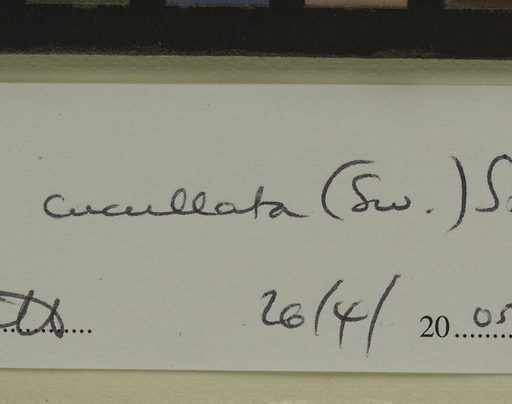 cucullata (Sw.) S
26/4/ 2005